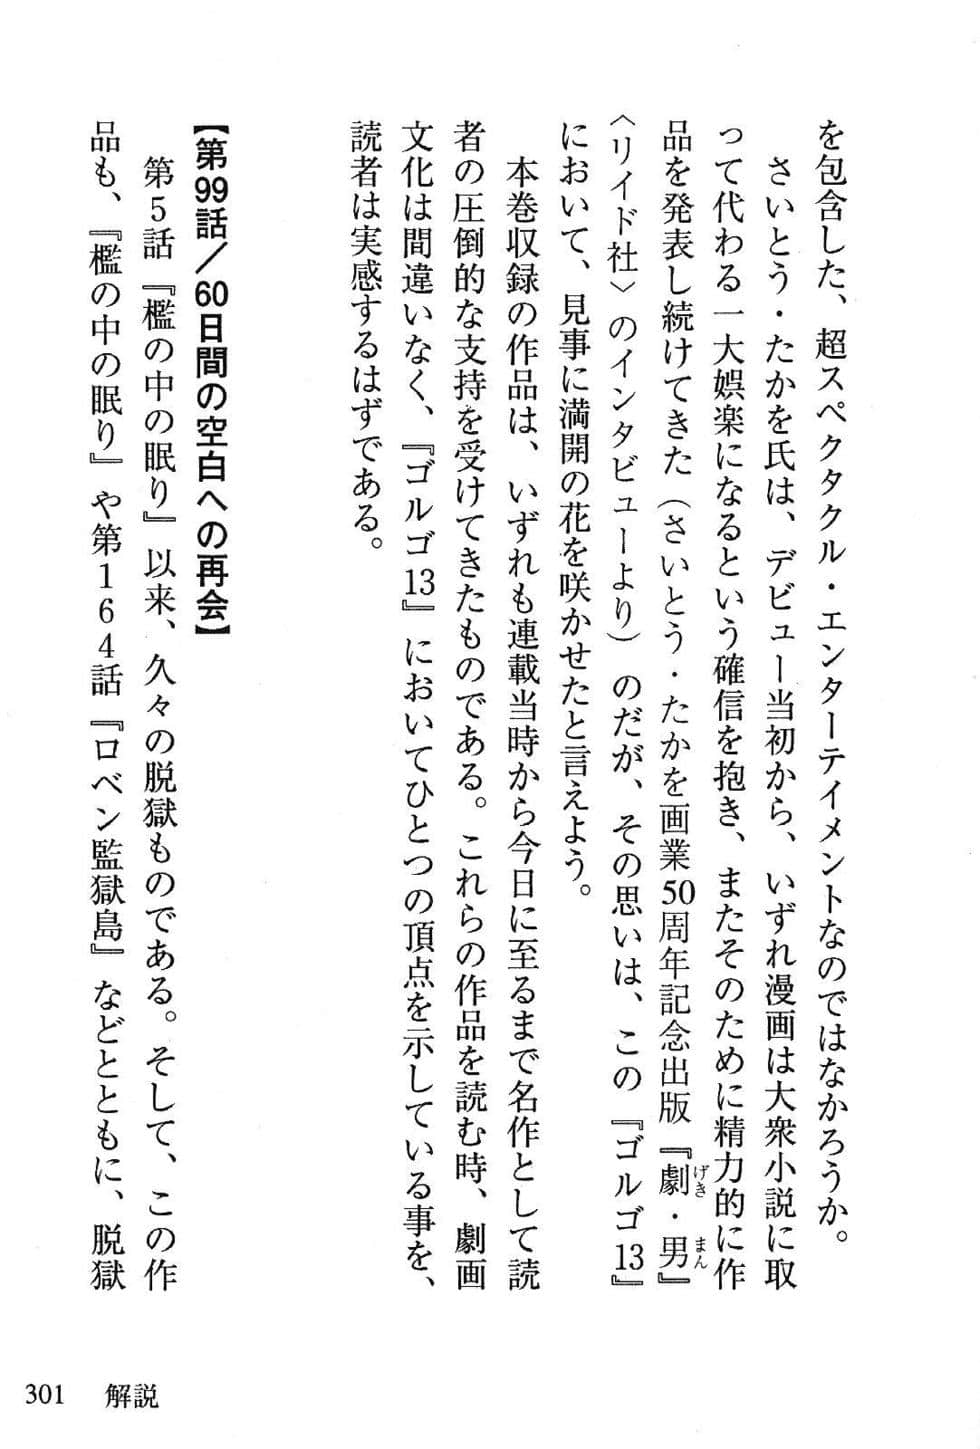 を包含した、超スペクタクル・エンターテイメントなのではなかろうか。
さいとう・たかを氏は、デビュー当初から、いずれ漫画は大衆小説に取
って代わる一大娯楽になるという確信を抱き、またそのために精力的に作
品を発表し続けてきた（さいとう・たかを画業50周年記念出版『劇・男』
げき まん
〈リイド社〉のインタビューより）のだが、その思いは、この『ゴルゴ13』
において、見事に満開の花を咲かせたと言えよう。
本巻収録の作品は、いずれも連載当時から今日に至るまで名作として読
者の圧倒的な支持を受けてきたものである。これらの作品を読む時、劇画
文化は間違いなく、『ゴルゴ13』においてひとつの頂点を示している事を、
読者は実感するはずである。
【第99話／60日間の空白への再会】
第5話『檻の中の眠り』以来、久々の脱獄ものである。そして、この作
品も、『檻の中の眠り』や第164話『ロベン監獄島』などとともに、脱獄
301 解説